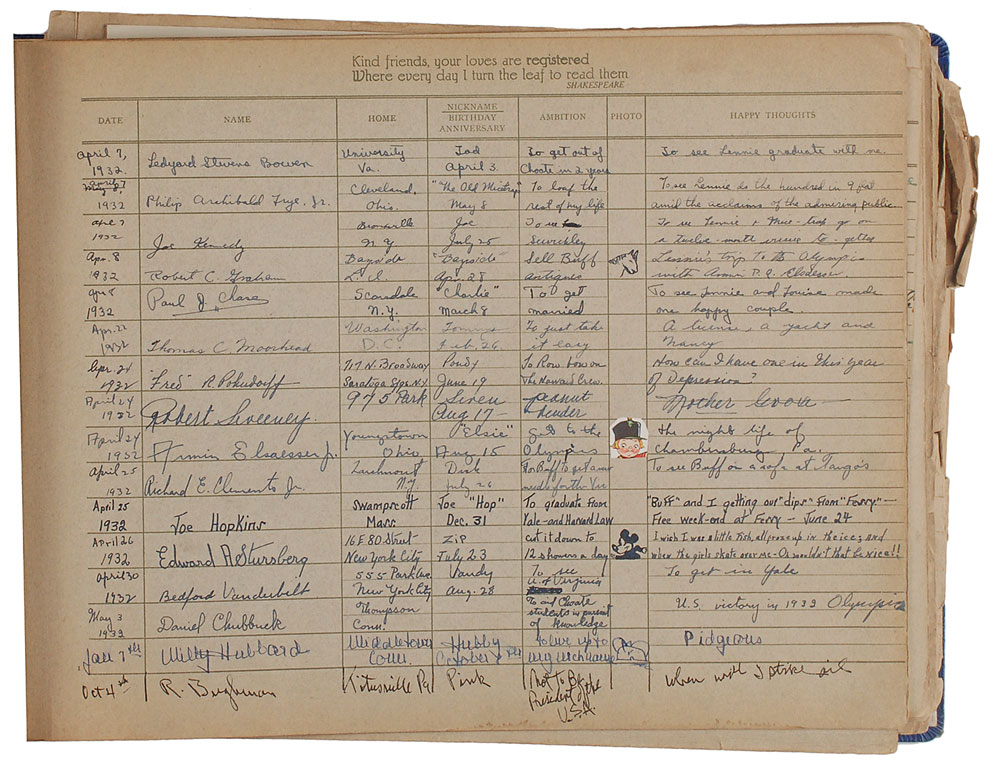 Kind friends, your loves are registered
Where every day I turn the leaf to read them
SHAKESPEARE
DATE NAME HOME NICKNAME BIRTHDAY ANNIVERSARY AMBITION PHOTO HAPPY THOUGHTS
April 7, University Tad To get out of To see Lennie graduate with me.
1932. Ledyard Stevens Bowen Va. April 3. Choate in 2 years
April 7 Cleveland, "The Old To loaf the To see Lennie do the hundred in 9 flat
1932 Philip Archibald Frye, Jr. Ohio. May 8 rest of my life amid the acclaims of the admiring public.
April 7 Bronxville Joe To see To see Lennie + go on
1932 Joe Kennedy N.Y July 25 Sewickley a twelve-month together
Apr. 8 Bayside "Bayside" Sell Buff Lennie's trip to the Olympics
1932 Robert C. Graham L.I. Apr. 28 antiques with Armin P.R. Elsaesser
Apr 8 Paul J. Chase Scarsdale "Charlie" To get To see Lennie and Louise made
1932 N.Y. March 8 married one happy couple.
Apr. 22 Washington Tommy To just take A license, a yacht and
1932 Thomas C. Moorhead D.C. Feb. 26 it easy Nancy
Apr. 24 717 N. Broadway Pondy To Row bow on How can I have one in this year
1932 "Fred" R. Saratoga Spgs. N.Y June 19 The Howard Crew. of Depression?
April 24 975 Park peanut Mother
1932 Robert Sweeney Aug 17 - vender
April 24 Youngstown "Elsie" Get to the the night life of
1932 Armin Elsaesser Jr. Ohio Aug. 15 Olympics Chambersburg Pa.
April 25 Larchmont Dick For Buff to get a To see Buff on a sofa at
1932 Richard E. Clements Jr. NY July 26 for the
April 25 Swampscott Joe "Hop" To graduate from "Buff" and I getting our "dips" from "Ferry" -
1932 Joe Hopkins Mass Dec. 31 Yale - and Harvard Law Free week-end at Ferry - June 24
April 26 16 E 80 Street Zip cut it down to I wish I was a little fish, all froze up in the ice; and
1932 Edward A Stursberg New York City July 23 12 showers a day when the girls skate over me - Oh wouldn't that be nice!!
April 30 555 Park Ave. Vandy To see To get in Yale
1932 Bedford Vanderbilt New York City Aug. 28 U. of Virginia
May 3 Thompson To aid Choate U.S. victory in 1932 Olympics
1932 Daniel Chubbuck Conn. students in pursuit
of Knowledge
Jan 7th Willy Hubbard Middletown Hubby to live up to Pidgeons
Conn. October my nickname
Oct 4th R. Titusville Pa Pink Not To Be When will I strike oil
President of the
U.S.A.